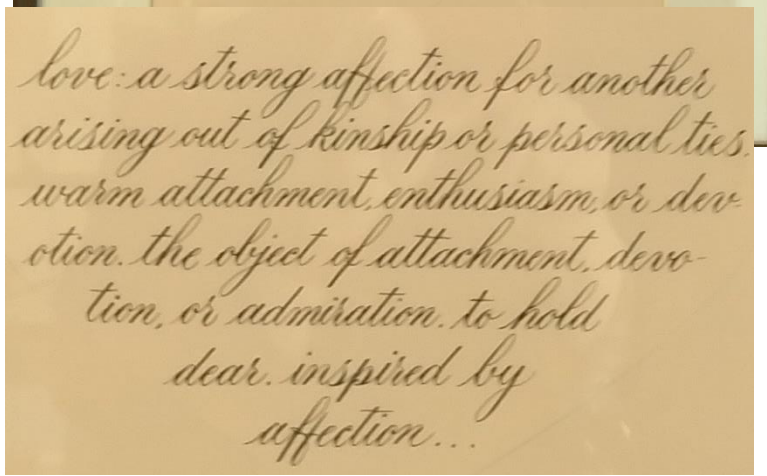 love: a strong affection for another
arising out of kinship or personal ties.
warm attachment, enthusiasm, or dev-
otion. the object of attachment, devo-
tion, or admiration. to hold
dear. inspired by
affection...